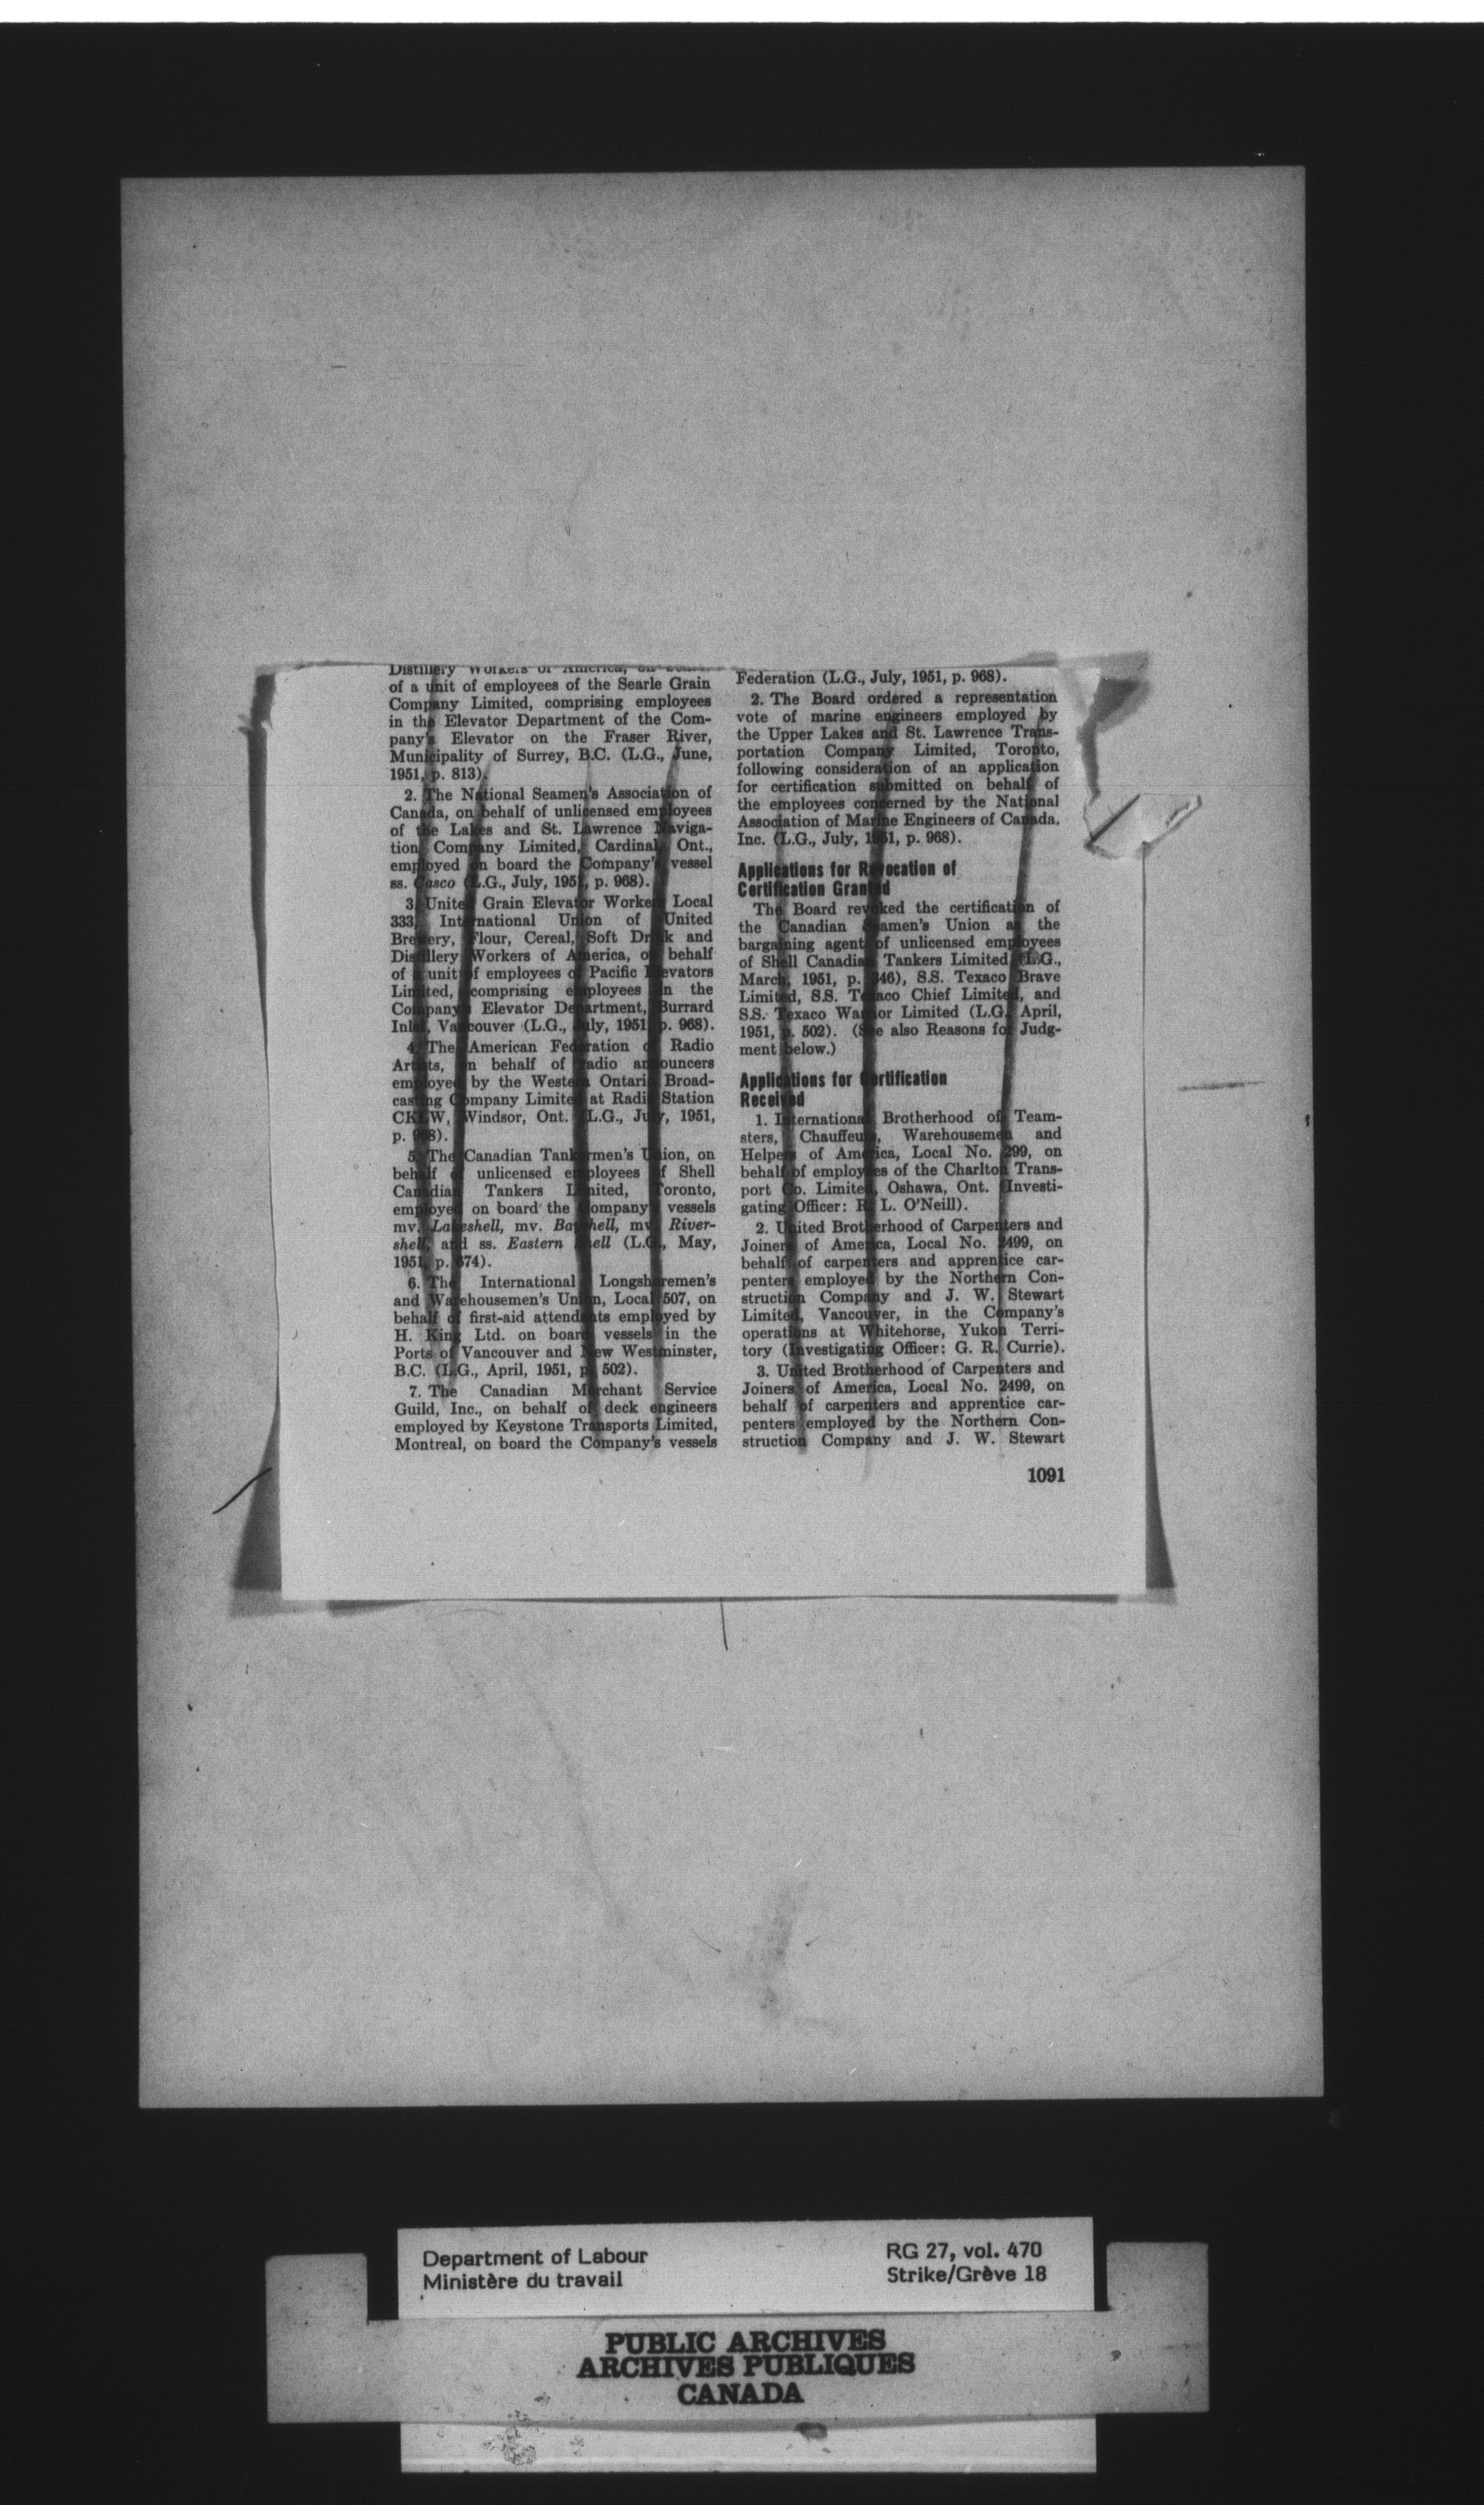 Distillery Workers of America, on
of a unit of employees of the Searle Grain
Company Limited, comprising employees
in the Elevator Department of the Com-
pany's Elevator on the Fraser River,
Municipality of Surrey, B.C. (L.G., June,
1951, p. 813).
2. The National Seamen's Association of
Canada, on behalf of unlicensed employees
of the Lakes and St. Lawrence Naviga-
tion Company Limited, Cardinal, Ont.,
employed on board the Company's vessel
ss. Casco (L.G., July, 1951, p. 968).
3. United Grain Elevator Workers Local
333, International Union of United
Brewery, Flour, Cereal, Soft Drink and
Distillery Workers of America, on behalf
of a unit of employees of Pacific Elevators
Limited, comprising employees in the
Company's Elevator Department, Burrard
Inlet, Vancouver (L.G., July, 1951, p. 968).
4. The American Federation of Radio
Artists, on behalf of radio announcers
employed by the Western Ontario Broad-
casting Company Limited at Radio Station
CKLW, Windsor, Ont. (L.G., July, 1951,
p. 968).
5. The Canadian Tankermen's Union, on
behalf of unlicensed employees of Shell
Canadian Tankers Limited, Toronto,
employed on board the Company's vessels
mv. Lakeshell, mv. Bayshell, mv. River-
shell, and ss. Eastern Shell (L.G., May,
1951, p. 674).
6. The International Longshoremen's
and Warehousemen's Union, Local 507, on
behalf of first-aid attendants employed by
H. King Ltd. on board vessels in the
Ports of Vancouver and New Westminster,
B.C. (L.G., April, 1951, p. 502).
7. The Canadian Merchant Service
Guild, Inc., on behalf of deck engineers
employed by Keystone Transports Limited,
Montreal, on board the Company's vessels
Federation (L.G., July, 1951, p. 968).
2. The Board ordered a representation
vote of marine engineers employed by
the Upper Lakes and St. Lawrence Trans-
portation Company Limited, Toronto,
following consideration of an application
for certification submitted on behalf of
the employees concerned by the National
Association of Marine Engineers of Canada,
Inc. (L.G., July, 1951, p. 968).
Applications for Revocation of
Certification Granted
The Board revoked the certification of
the Canadian Seamen's Union as the
bargaining agent of unlicensed employees
of Shell Canadian Tankers Limited (L.G.,
March, 1951, p. 346), S.S. Texaco Brave
Limited, S.S. Texaco Chief Limited, and
S.S. Texaco Warrior Limited (L.G. April,
1951, p. 502). (See also Reasons for Judg-
ment below.)
Applications for Certification
Received
1. International Brotherhood of Team-
sters, Chauffeurs, Warehousemen and
Helpers of America, Local No. 299, on
behalf of employees of the Charlton Trans-
port Co. Limited, Oshawa, Ont. (Investi-
gating Officer: R. L. O'Neill).
2. United Brotherhood of Carpenters and
Joiners of America, Local No. 2499, on
behalf of carpenters and apprentice car-
penters employed by the Northern Con-
struction Company and J. W. Stewart
Limited, Vancouver, in the Company's
operations at Whitehorse, Yukon Terri-
tory (Investigating Officer: G. R. Currie).
3. United Brotherhood of Carpenters and
Joiners of America, Local No. 2499, on
behalf of carpenters and apprentice car-
penters employed by the Northern Con-
struction Company and J. W. Stewart
1091
Department of Labour
Ministère du travail
RG 27, vol. 470
Strike/Grève 18
PUBLIC ARCHIVES
ARCHIVES PUBLIQUES
CANADA